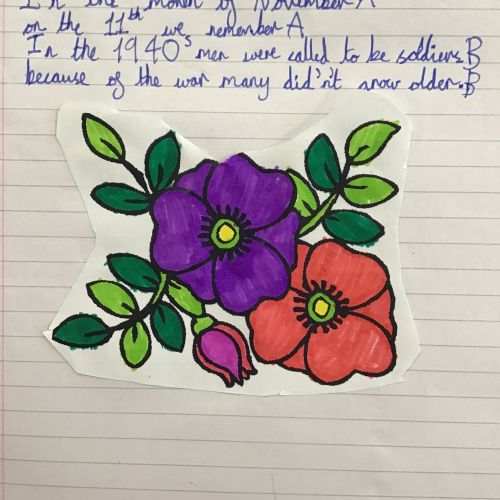 In the month of November A
on the 11th we remember A
In the 1940s men were called to be soldiers. B
because of the war many did'nt grow older. B